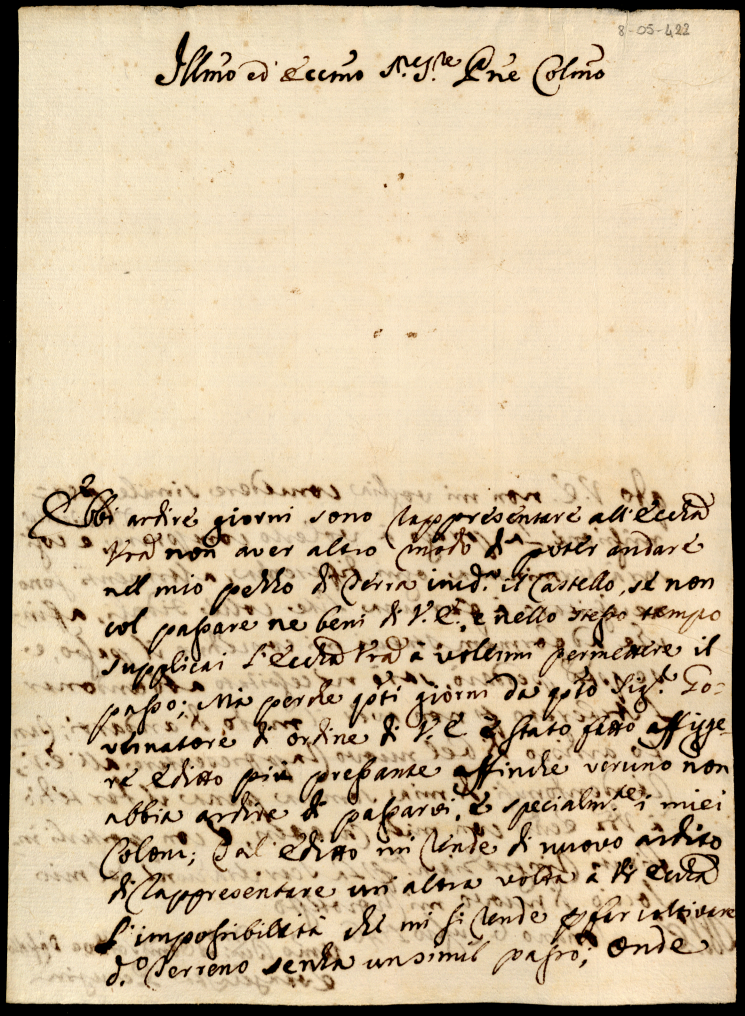 8-05-422
Illmo ed Eccmo Sre Sre Pne Colmo
Ebbi ardire giorni sono rappresentare all'Eccza
Vra non aver altro modo di poter andare
nel mio pezzo di Terra il Castello, se non
col passare ne beni di V. E., e nello stesso tempo
supplicai l'Eccza Vra à volermi permettere il
passo; Mà perche qti giorni da qto Sigr Go-
vernatore d'ordine di V. E. è stato fatto affigge-
re editto più pressante affinche veruno non
abbia ardire di passarvi, e specialmte i miei
Coloni; Tal editto mi rende di nuovo ardito
di rappresentare un altra volta à V. Eccza
l'impossibilità che mi si rende p far coltivare
do Terreno senza un simil passo; Onde